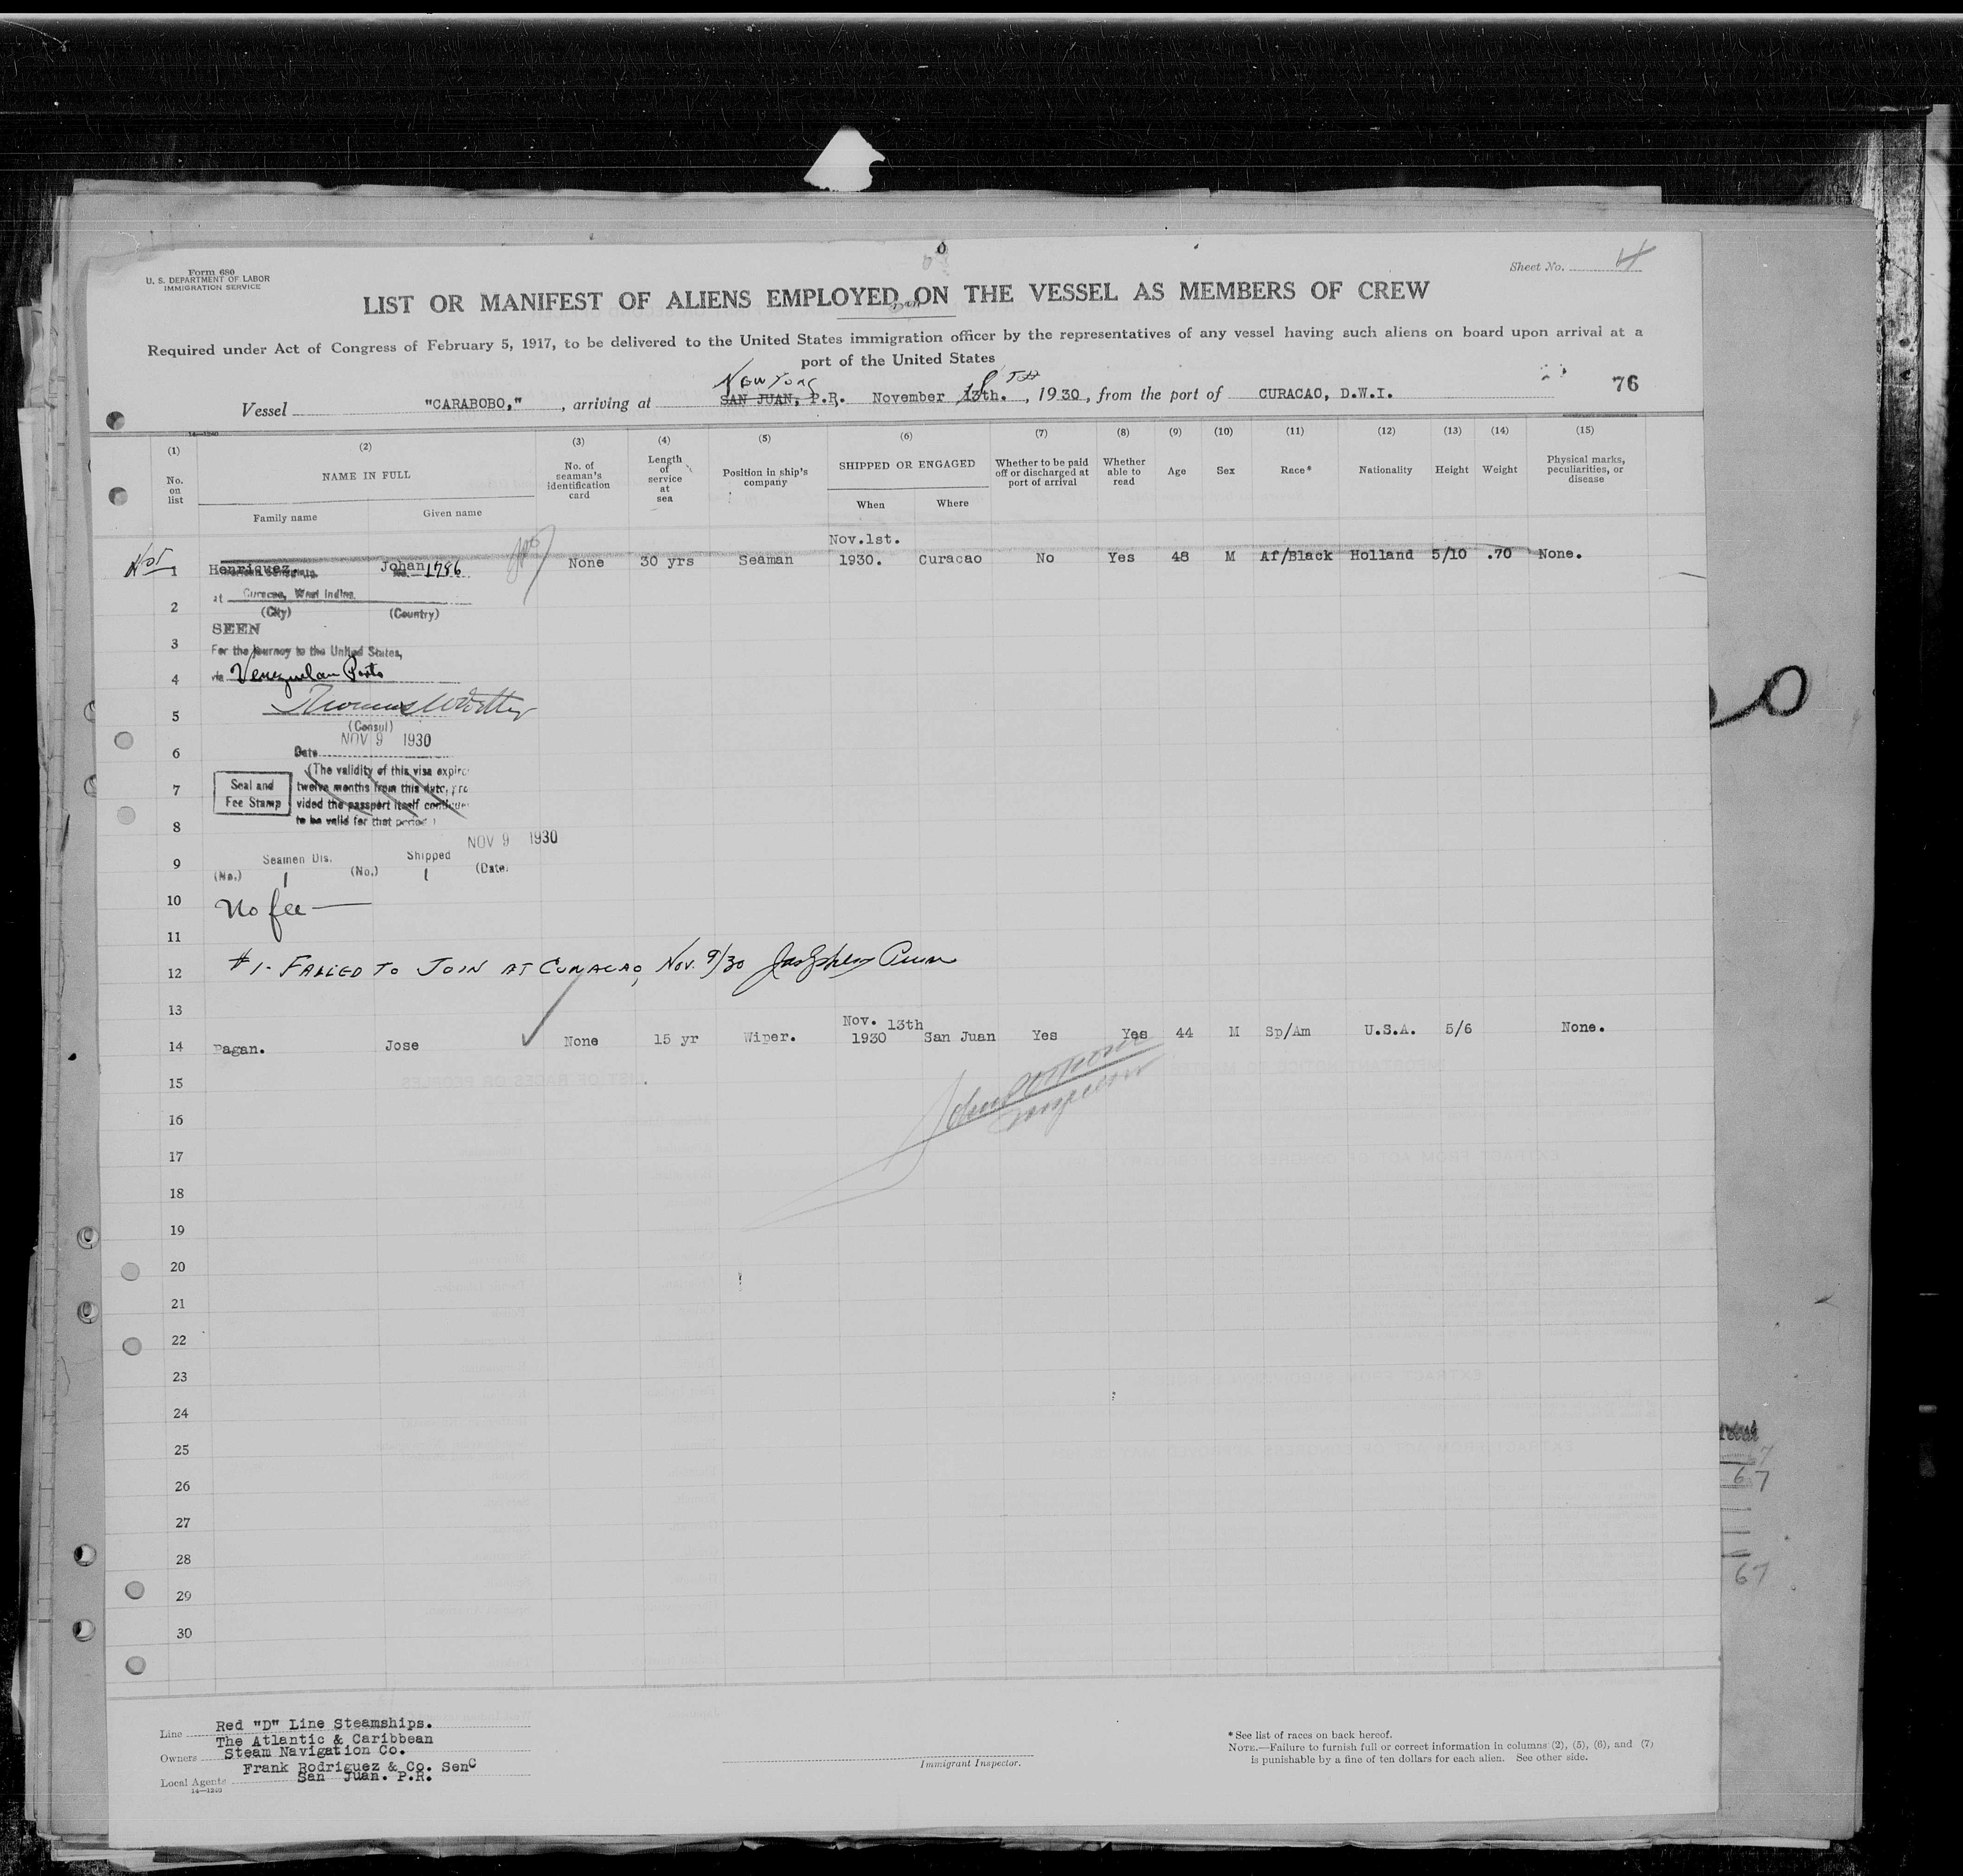 Form 680
U. S. DEPARTMENT OF LABOR
IMMIGRATION SERVICE
Sheet No. 4
LIST OR MANIFEST OF ALIENS EMPLOYED ON THE VESSEL AS MEMBERS OF CREW
Required under Act of Congress of February 5, 1917, to be delivered to the United States immigration officer by the representatives of any vessel having such aliens on board upon arrival at a
port of the United States
New York
Vessel "CARABOBO," , arriving at SAN JUAN, P.R. November 13th. , 1930, from the port of CURACAO, D.W.I.
76
14—1240
(1) (2) (3) (4) (5) (6) (7) (8) (9) (10) (11) (12) (13) (14) (15)
No. on list
NAME IN FULL
Family name Given name
No. of seaman's identification card
Length of service at sea
Position in ship's company
SHIPPED OR ENGAGED
When Where
Whether to be paid off or discharged at port of arrival
Whether able to read
Age
Sex
Race*
Nationality
Height
Weight
Physical marks, peculiarities, or disease
Nov.1st.
Not 1 Henriquez. Johan None 30 yrs Seaman 1930. Curacao No Yes 48 M Af/Black Holland 5/10 .70 None.
No. 1786
2 at Curacao, West Indies
(City) (Country)
SEEN
3 For the journey to the United States,
4 via Venezuelan Ports
5
(Consul)
NOV 9 1930
6 Date
(The validity of this visa expires
7 Seal and Fee Stamp twelve months from this date, pro
vided the passport itself continues
8 to be valid for that period)
NOV 9 1930
9 Seamen Dis. Shipped
(No.) 1 (No.) 1 (Date)
10 No fee
11
12 #1- FAILED TO JOIN AT CURACAO, Nov. 9/30
13
Nov. 13th
14 Pagan. Jose None 15 yr Wiper. 1930 San Juan Yes Yes 44 M Sp/Am U.S.A. 5/6 None.
15
16
17
18
19
20
21
22
23
24
25
26
27
28
29
30
67
67
Line Red "D" Line Steamships.
The Atlantic & Caribbean
Owners Steam Navigation Co.
Frank Rodriguez & Co. SenC
Local Agents San Juan. P.R.
14—1240
Immigrant Inspector.
* See list of races on back hereof.
NOTE.—Failure to furnish full or correct information in columns (2), (5), (6), and (7)
is punishable by a fine of ten dollars for each alien. See other side.